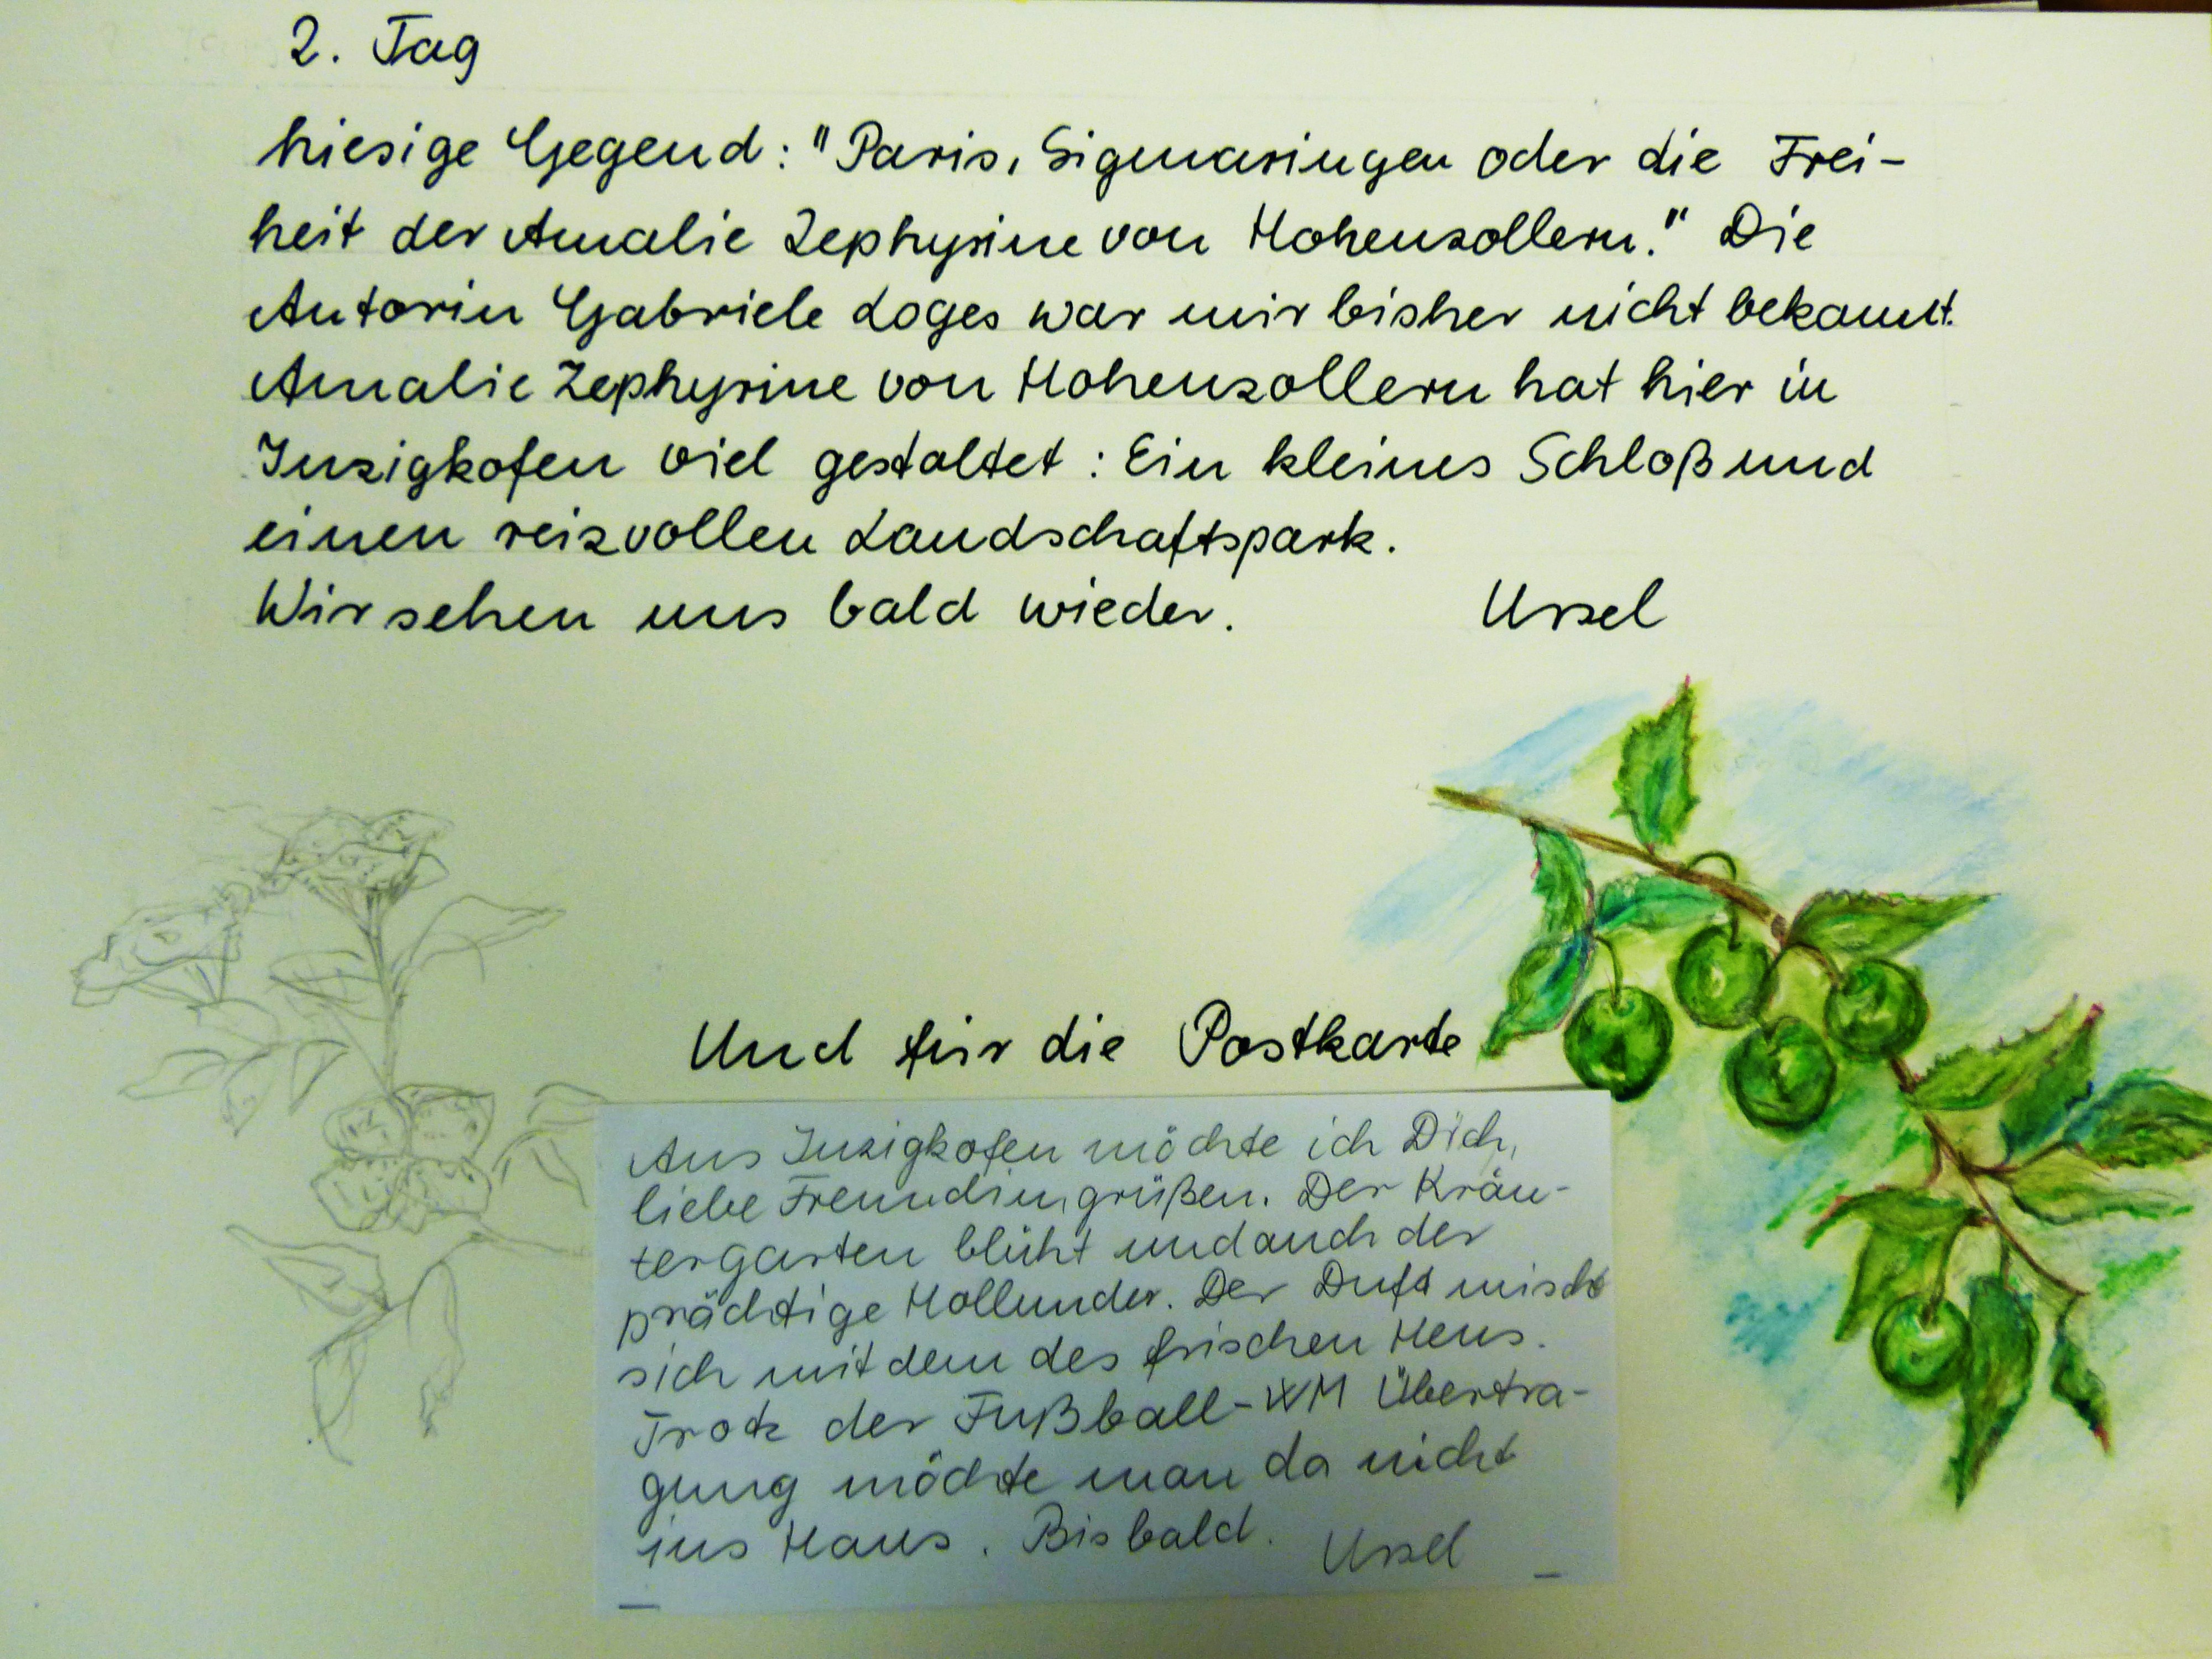 2. Tag
hiesige Gegend: "Paris, Sigmaringen oder die Frei-
heit der Amalie Zephyrine von Hohenzollern." Die
Autorin Gabriele Loges war mir bisher nicht bekannt.
Amalie Zephyrine von Hohenzollern hat hier in
Inzigkofen viel gestaltet: Ein kleines Schloß und
einen reizvollen Landschaftspark.
Wir sehen uns bald wieder. Ursel
Und für die Postkarte
Aus Inzigkofen möchte ich Dich,
liebe Freundin, grüßen. Der Kräu-
tergarten blüht und auch der
prächtige Hollunder. Der Duft mischt
sich mit dem des frischen Heus.
Trotz der Fußball-WM Übertra-
gung möchte man da nicht
ins Haus. Bis bald. Ursel